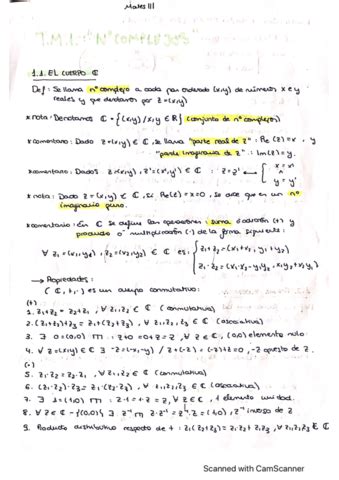 Mates III
T.M.1.: "Nº COMPLEJOS"
1.1. EL CUERPO ℂ
Def: Se llama nº complejo a cada par ordenado (x,y) de números x e y
reales y que denotamos por z=(x,y)
*nota: Denotamos ℂ = {(x,y) / x,y ∈ ℝ} (conjunto de nº complejos)
*comentario: Dado z=(x,y) ∈ ℂ, se llama "parte real de z": Re(z)=x, y
"parte imaginaria de z": Im(z)=y.
*comentario: Dados z=(x,y), z'=(x',y') ∈ ℂ : z=z' ⟺ { x=x' y=y'
*nota: Dado z=(x,y) ∈ ℂ, si Re(z)=x=0, se dice que es un nº
imaginario puro.
*comentario: En ℂ se definen las operaciones: suma o adición (+) y
producto o multiplicación (·) de la forma siguiente:
∀ z₁=(x₁,y₁), z₂=(x₂,y₂) ∈ ℂ es: { z₁+z₂=(x₁+x₂, y₁+y₂)
z₁·z₂=(x₁·x₂-y₁y₂, x₁y₂+x₂y₁)
→ Propiedades:
(ℂ,+,·) es un cuerpo conmutativo:
(+)
1. z₁+z₂ = z₂+z₁, ∀ z₁,z₂ ∈ ℂ (conmutativa)
2. (z₁+z₂)+z₃ = z₁+(z₂+z₃), ∀ z₁,z₂,z₃ ∈ ℂ (asociativa)
3. ∃ 0=(0,0) : z+0=0+z=z, ∀ z ∈ ℂ, (0,0) elemento nulo.
4. ∀ z=(x,y) ∈ ℂ ∃ -z=(-x,-y) / z+(-z)=(-z)+z=0, -z opuesto de z.
(·)
5. z₁·z₂ = z₂·z₁, ∀ z₁,z₂ ∈ ℂ (conmutativa)
6. (z₁·z₂)·z₃ = z₁·(z₂·z₃), ∀ z₁,z₂,z₃ ∈ ℂ (asociativa)
7. ∃ 1=(1,0) : z·1=1·z=z, ∀ z ∈ ℂ, 1 elemento unidad.
8. ∀ z ∈ ℂ-{(0,0)} ∃ z⁻¹ z·z⁻¹=z⁻¹·z=(1,0), z⁻¹ inverso de z
9. Producto distributivo respecto de +: z₁(z₂+z₃)=z₁z₂+z₁z₃, ∀ z₁,z₂,z₃ ∈ ℂ
Scanned with CamScanner